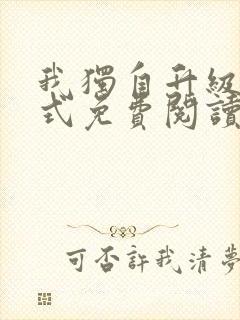 我獨自升級
式免費閱讀
可否許我清夢